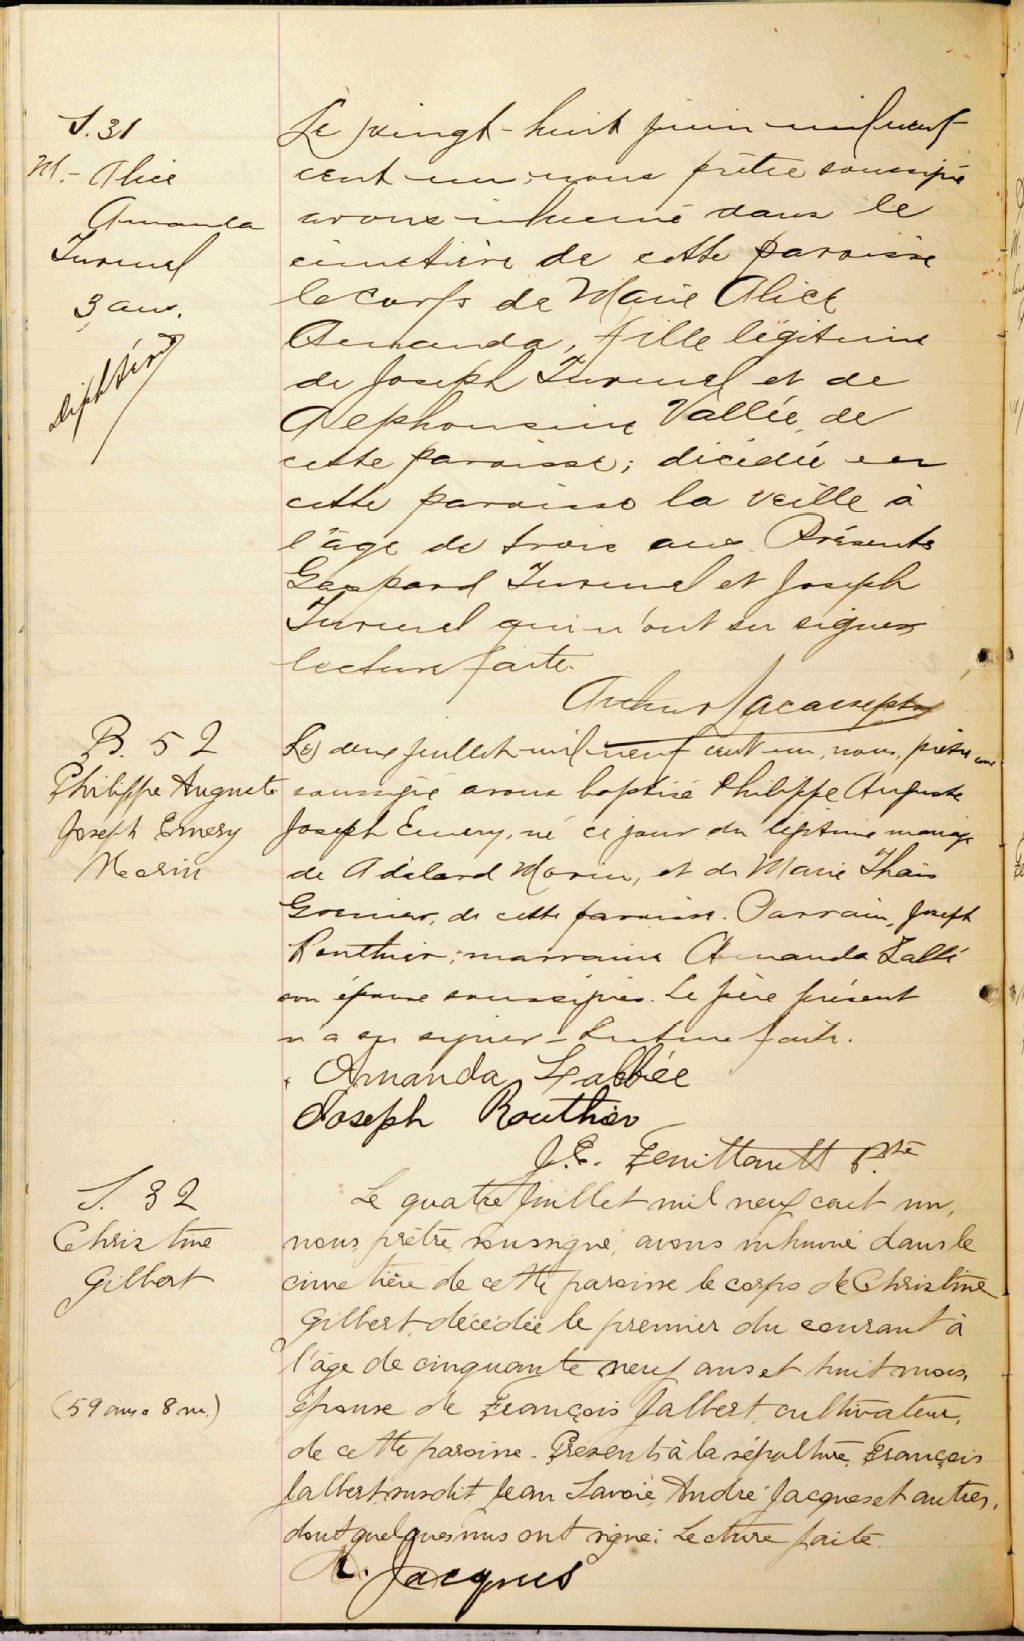 S. 31
M.- Alice
Amanda
Turmel
3 ans.
Diphtérie
Le vingt-huit juin mil neuf
cent un, nous prêtre soussigné
avons inhumé dans le
cimetière de cette paroisse
le corps de Marie Alice
Amanda, fille légitime
de Joseph Turmel et de
Alphonsine Vallée, de
cette paroisse; décédée en
cette paroisse la veille à
l'âge de trois ans. Présents
Gaspard Turmel et Joseph
Turmel qui n'ont su signer
lecture faite.
Arthur Lacasse ptre
B. 52
Philippe Auguste
Joseph Emery
Morin
Le deux juillet mil neuf cent un, nous, prêtre
soussigné avons baptisé Philippe Auguste
Joseph Emery, né ce jour du légitime mariage
de Adélard Morin, et de Marie Thaïs
Grenier, de cette paroisse. Parrain, Joseph
Routhier; marraine Amanda Labbé
son épouse soussignés. Le père présent
n'a su signer - Lecture faite.
Amanda Labbée
Joseph Routhier
J.E. Feuiltault Ptre
S. 32
Christine
Gilbert
(59 ans. 8 m.)
Le quatre Juillet mil neuf cent un,
nous, prêtre, soussigné, avons inhumé dans le
cimetière de cette paroisse le corps de Christine
Gilbert, décédée le premier du courant à
l'âge de cinquante neuf ans et huit mois,
épouse de François Jalbert, cultivateur,
de cette paroisse. Présents à la sépulture, François
Jalbert, susdit, Jean Savoie, André Jacques et autres,
dont quelques uns ont signé: Lecture faite.
A. Jacques